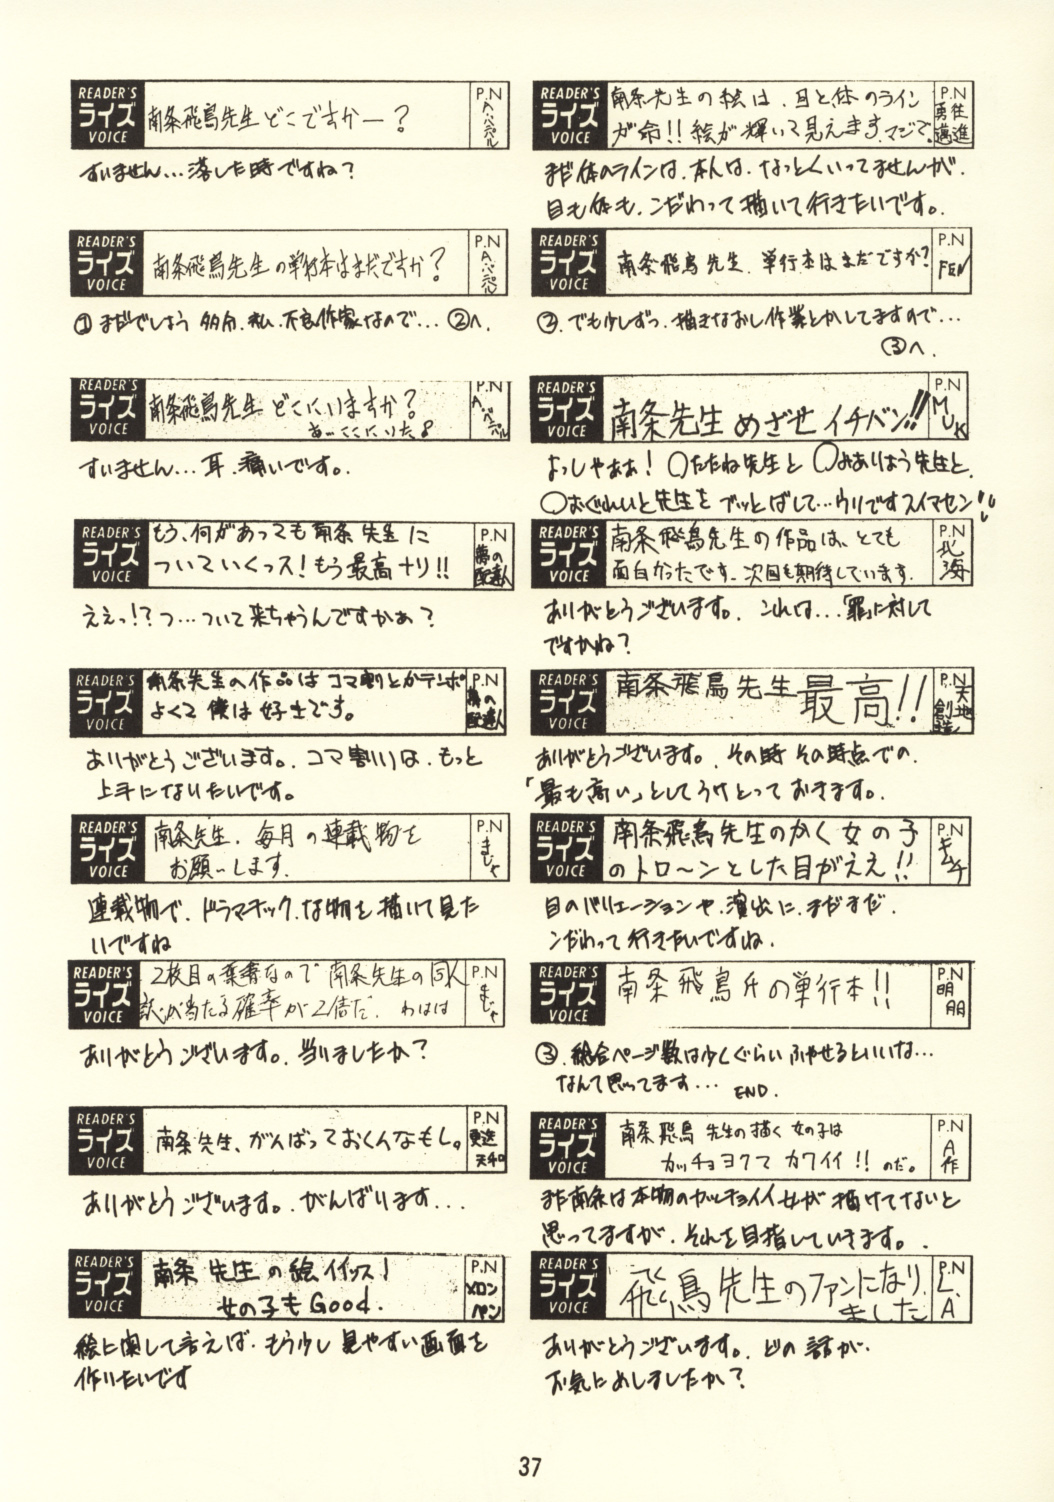 READER'S
ライズ
VOICE
南条飛鳥先生どこですかー?
P.N
すいません…落した時ですね?
READER'S
ライズ
VOICE
南条飛鳥先生の単行本はまだですか?
P.N
①まだでしょう 多分、私、不良作家なので…②へ.
READER'S
ライズ
VOICE
南条飛鳥先生 どこにいますか?
あ、ここにいた
P.N
すいません…耳、痛いです。
READER'S
ライズ
VOICE
もう、何があっても南条先生に
ついていくっス!もう最高ナリ!!
P.N
夢の
配達人
ええっ!?つ…ついて来ちゃうんですかぁ?
READER'S
ライズ
VOICE
南条先生の作品はコマ割とかテンポ
よくて僕は好きです。
P.N
夢の
配達人
ありがとうございます。コマ割りは、もっと
上手になりたいです。
READER'S
ライズ
VOICE
南条先生、毎月の連載物を
お願いします.
P.N
まじゃ
連載物で、ドラマチックな物を描いて見た
いですね
READER'S
ライズ
VOICE
2枚目の葉書なので南条先生の同人
誌が当たる確率が2倍だ. わはは
P.N
まじゃ
ありがとうございます。当りましたか?
READER'S
ライズ
VOICE
南条先生、がんばっておくんなもし。
P.N
ありがとうございます。がんばります...
READER'S
ライズ
VOICE
南条 先生の絵イイッス!
女の子もGood.
P.N
メロン
ペン
絵に関して言えば、もう少し見やすい画面を
作りたいです
READER'S
ライズ
VOICE
南条先生の絵は、目と体のライン
が命!!絵が輝いて見えます、マジで。
P.N
勇往
邁進
まだ体のラインは、本人は、なっとくいってませんが、
目も体も、こだわって描いて行きたいです。
READER'S
ライズ
VOICE
南条飛鳥先生、単行本はまだですか?
P.N
FEN
②、でも少しずつ、描きなおし作業とかしてますので…
③へ.
READER'S
ライズ
VOICE
南条先生 めざせイチバン!!
P.N
MUK
よっしゃぁぁ!〇たたね先生と〇みありほう先生と、
〇おぐれいと先生をブッとばして…ウソですスイマセン!!
READER'S
ライズ
VOICE
南条飛鳥先生の作品は、とても
面白かったです、次回も期待しています.
P.N
北海
ありがとうございます。これは…「罪」に対して
ですかね?
READER'S
ライズ
VOICE
南条飛鳥先生最高!!
P.N
天地
創造
ありがとうございます。その時その時点での、
「最も高い」としてうけとっておきます。
READER'S
ライズ
VOICE
南条飛鳥先生のかく女の子
のトロ〜ンとした目がええ!!
P.N
キムチ
目のバリエーションや、演出に、まだまだ、
こだわって行きたいですね.
READER'S
ライズ
VOICE
南条飛鳥氏の単行本!!
P.N
明朋
③、総合ページ数は少しぐらいふやせるといいな…
なんて思ってます… END.
READER'S
ライズ
VOICE
南条飛鳥 先生の描く女の子は
カッチョヨクてカワイイ!! のだ。
P.N
A作
まだ南条は本物のカッチョイイ女が描けてないと
思ってますが、それを目指していきます。
READER'S
ライズ
VOICE
飛鳥先生のファンになり
ました
P.N
L.A
ありがとうございます。どの話が、
お気にめしましたか?
37